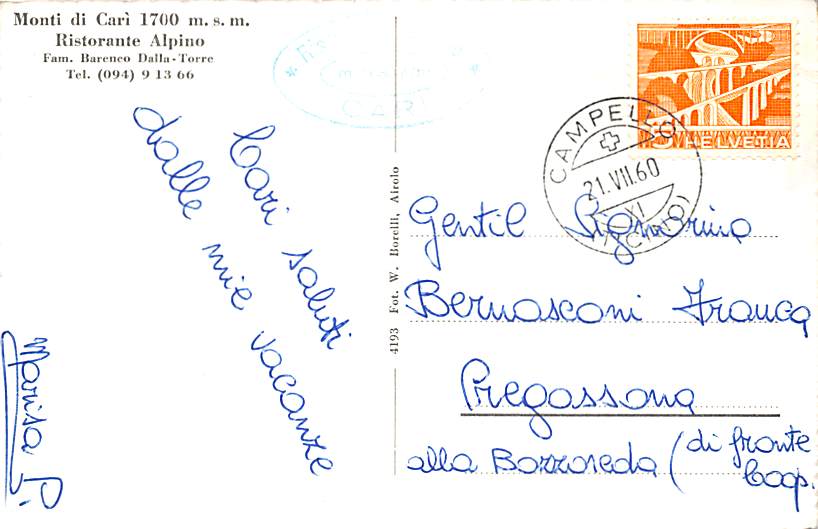 Monti di Carì 1700 m. s. m.
Ristorante Alpino
Fam. Barenco Dalla-Torre
Tel. (094) 9 13 66
CARÌ
Cari saluti
dalle mie vacanze
Marisa P.
4193 Fot. W. Borelli, Airolo
5 HELVETIA
CAMPELLO
21.VII.60
XI
(TICINO)
Gentil Signorina
Bernasconi Franca
Pregassona
alla Bozzoreda (di fronte
Coop.